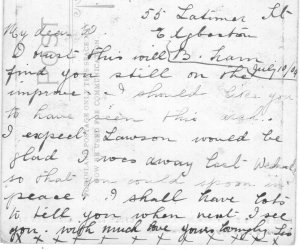 55 Latimer St
My dear Ed Edgbaston
I trust this will B.ham
find you still on the July 10/04
improve. I should like you
to have seen this
I expect Lawson would be
glad I was away last Wednesd
so that you could spoon in
peace! I shall have lots
to tell you when next I see
you. with much love yours lovingly Lis
x x x x x x x x x x